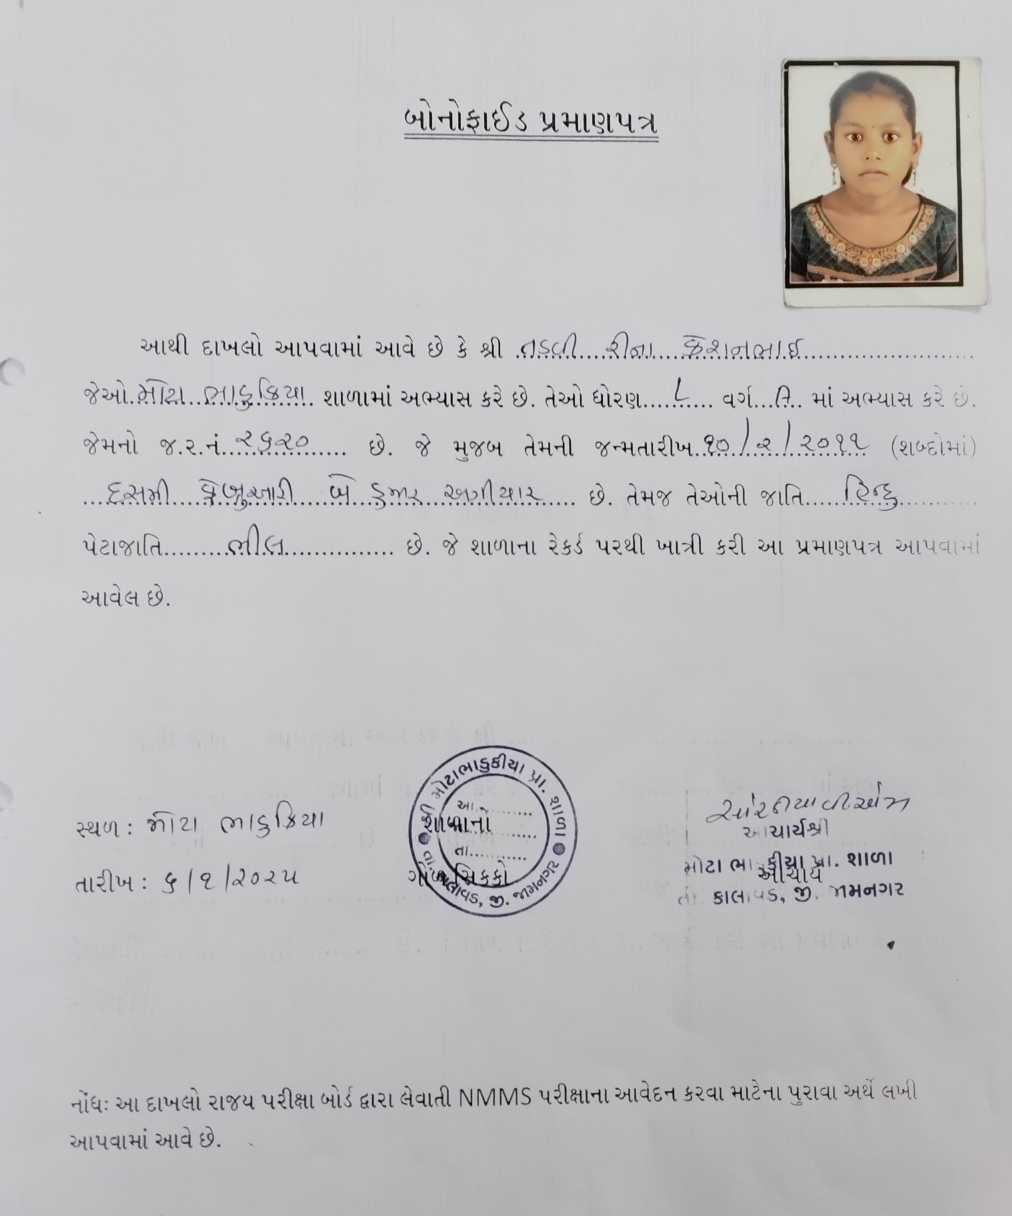 બોનોફાઈડ પ્રમાણપત્ર
આથી દાખલો આપવામાં આવે છે કે શ્રી .તડવી....રીના....કેશનભાઈ............................
જેઓ.મોટા..ભાડુકિયા. શાળામાં અભ્યાસ કરે છે. તેઓ ધોરણ.....૮.... વર્ગ...... માં અભ્યાસ કરે છે.
જેમનો જ.ર.નં..૨૬૨૦...... છે. જે મુજબ તેમની જન્મતારીખ.૧૦/૨/૨૦૧૧ (શબ્દોમાં)
...દસમી...ફેબ્રુઆરી....બે હજાર..અગીયાર..... છે. તેમજ તેઓની જાતિ.....હિન્દુ..............
પેટાજાતિ.........ભીલ................ છે. જે શાળાના રેકર્ડ પરથી ખાત્રી કરી આ પ્રમાણપત્ર આપવામાં
આવેલ છે.
શ્રી મોટાભાડુકીયા પ્રા. શાળા
તા. કાલાવડ, જી. જામનગર
આ..............
શાળાનો
તા............
ગોળ સિક્કો
સ્થળ : મોટા ભાડુકિયા
તારીખ : ૬/૧/૨૦૨૫
આચાર્યશ્રી
આચાર્ય
મોટા ભાડુકીયા પ્રા. શાળા
તા. કાલાવડ, જી. જામનગર
નોંધઃ આ દાખલો રાજય પરીક્ષા બોર્ડ દ્વારા લેવાતી NMMS પરીક્ષાના આવેદન કરવા માટેના પુરાવા અર્થે લખી
આપવામાં આવે છે.